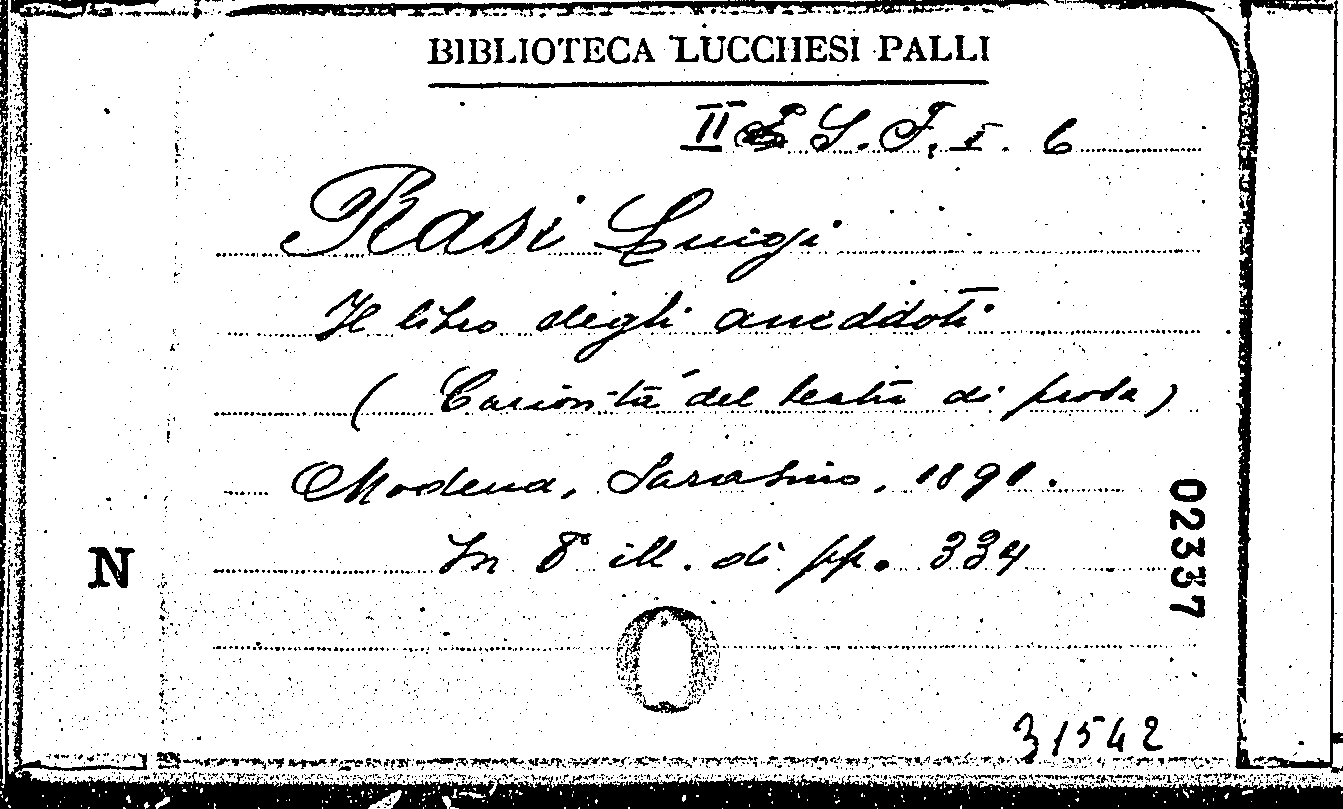 BIBLIOTECA LUCCHESI PALLI
II S. F. I. 6
Rasi Luigi
Il libro degli aneddoti
(Curiosità del teatro di prosa)
Modena, Sarasino, 1891.
In 8° ill. di pp. 334
N
02337
31542